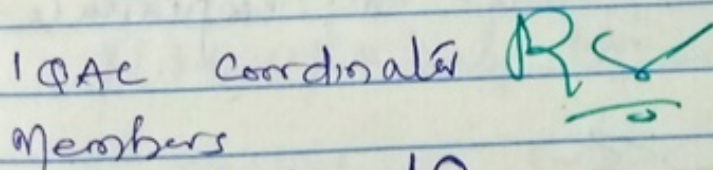 IQAC Coordinator
Members